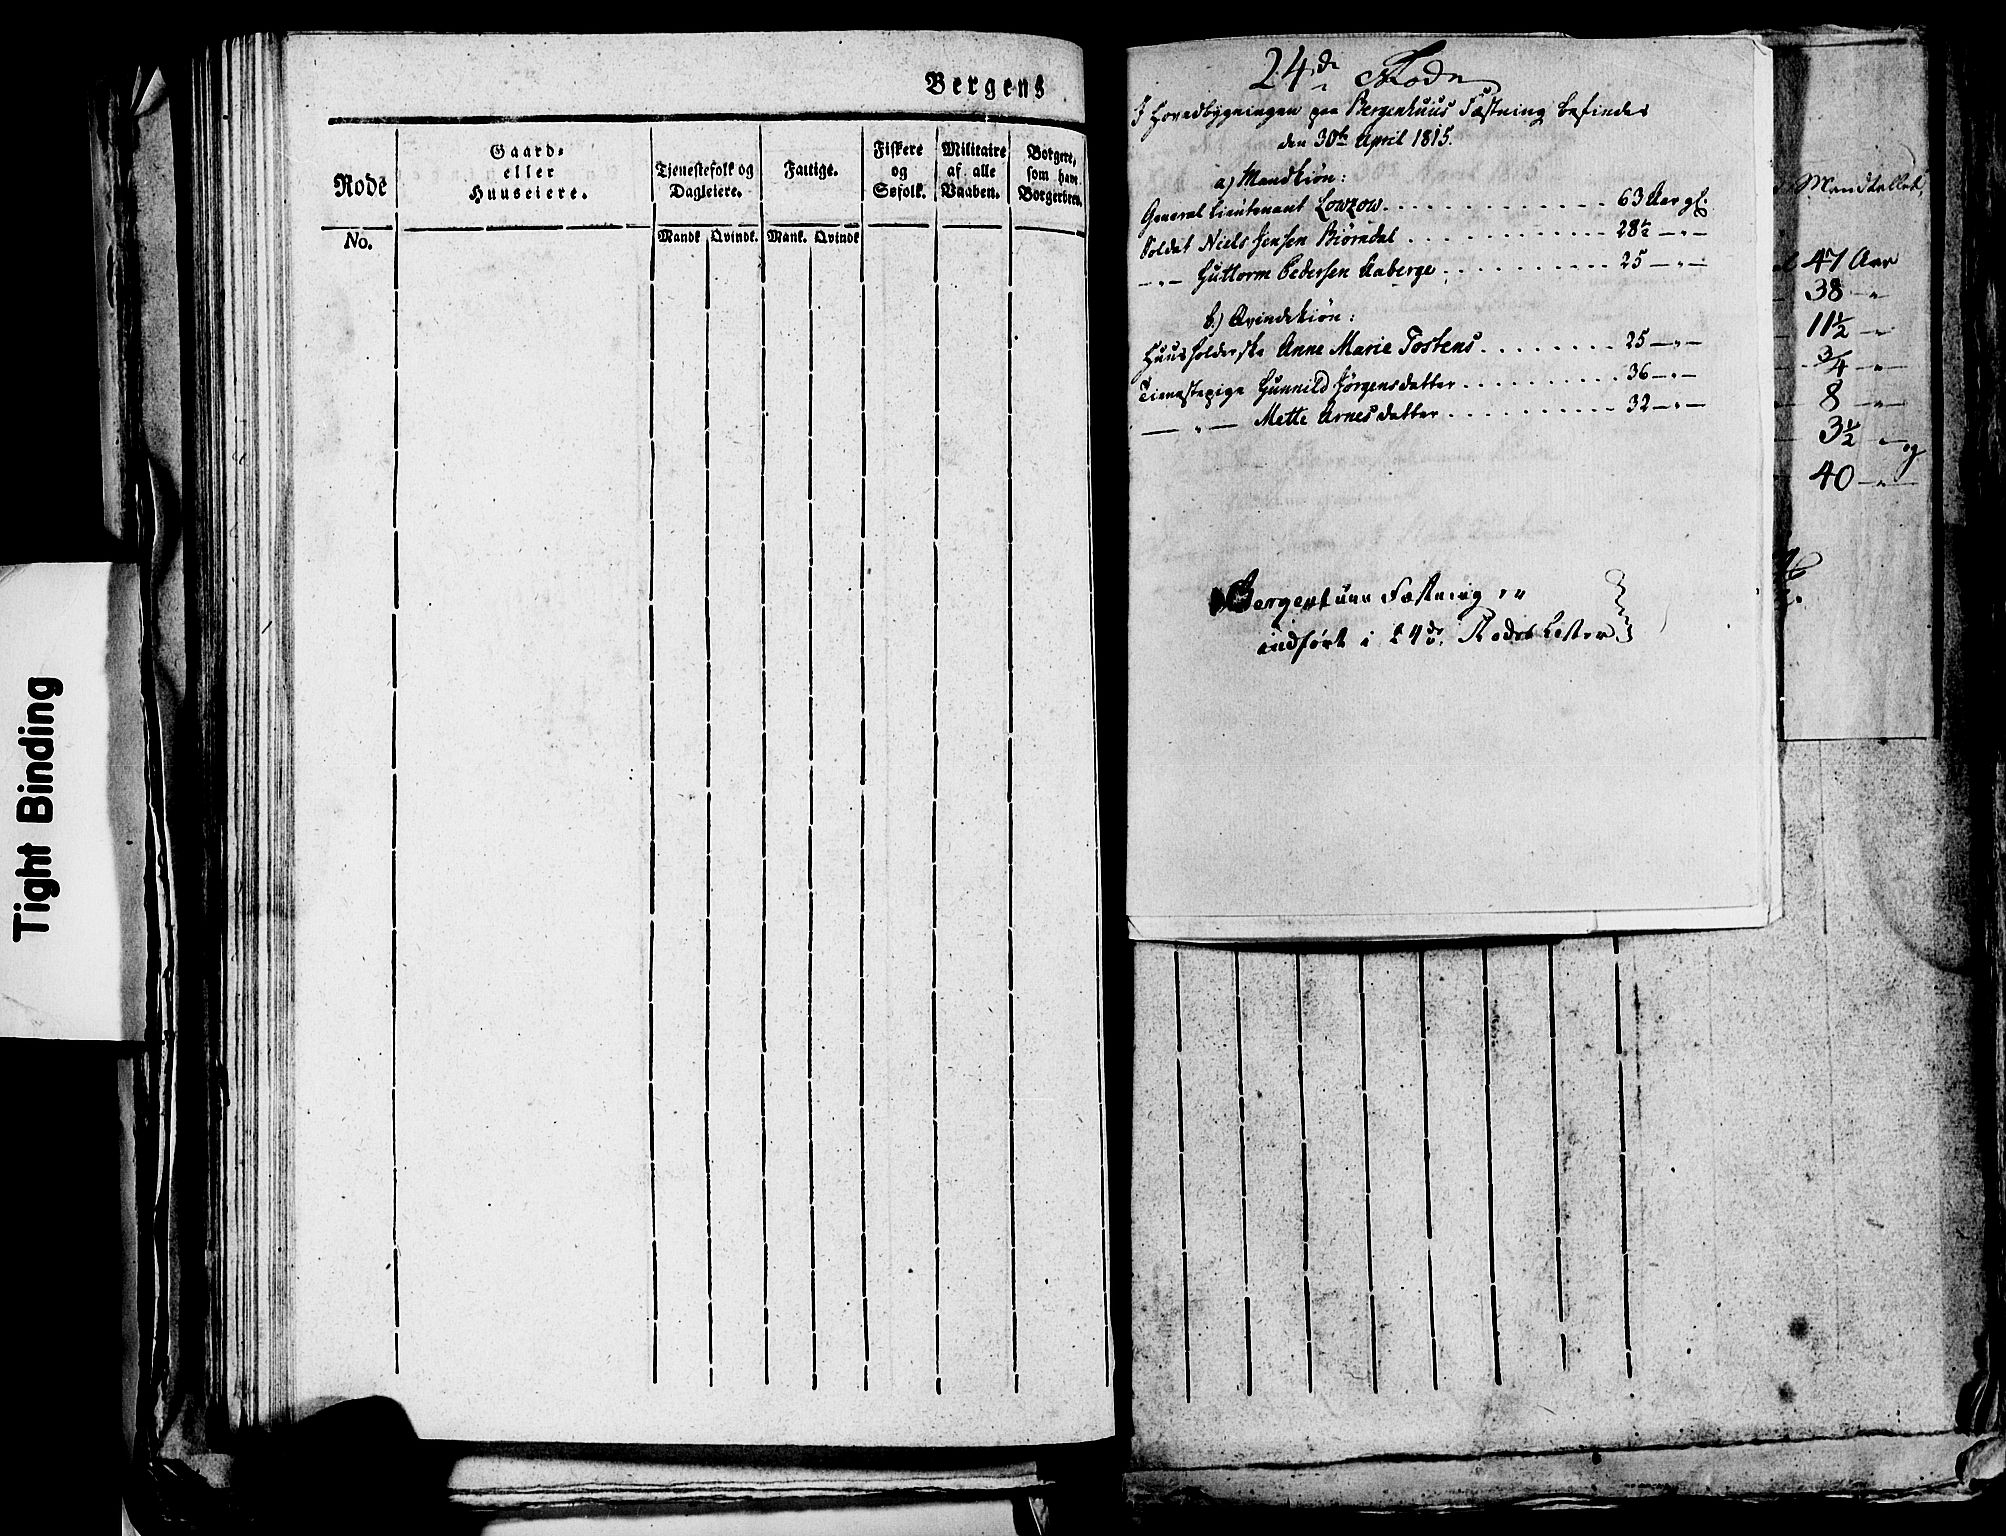 Tight Binding
Bergens
Rode
No.
Gaard-
eller
Huuseiere.
Tjenestefolk og
Dagleiere.
Mandk Qvindk.
Fattige.
Mank. Qvindk
Fiskere
og
Søfolk.
Militaire
af alle
Vaaben.
Borgere,
som have
Borgerbrev.
24de Rode
I Hovedbygningen paa Bergenhuus Fæstning befindes
den 30te April 1815.
a) Mandkiøn:
General Lieutenant Lowzow . . . . 63 Aar gl.
Soldat Niels Jensen Biørndal . . . . 28½ — " —
— " — Guttorm Pedersen Aaberge . . . . 25 — " —
b.) Qvindekiøn:
Huusholderske Anne Marie Tostens . . . . 25 — " —
Tienestepige Gunnild Jørgensdatter . . . . 36 — " —
— " — Mette Arnesdatter . . . . 32 — " —
Bergenhuus Fæstning
indført i 24de Rodes Lister
Mandtallet,
47 Aar
38 — "
11½ — "
¾ — "
8 — "
3½ — " og
40 — " —